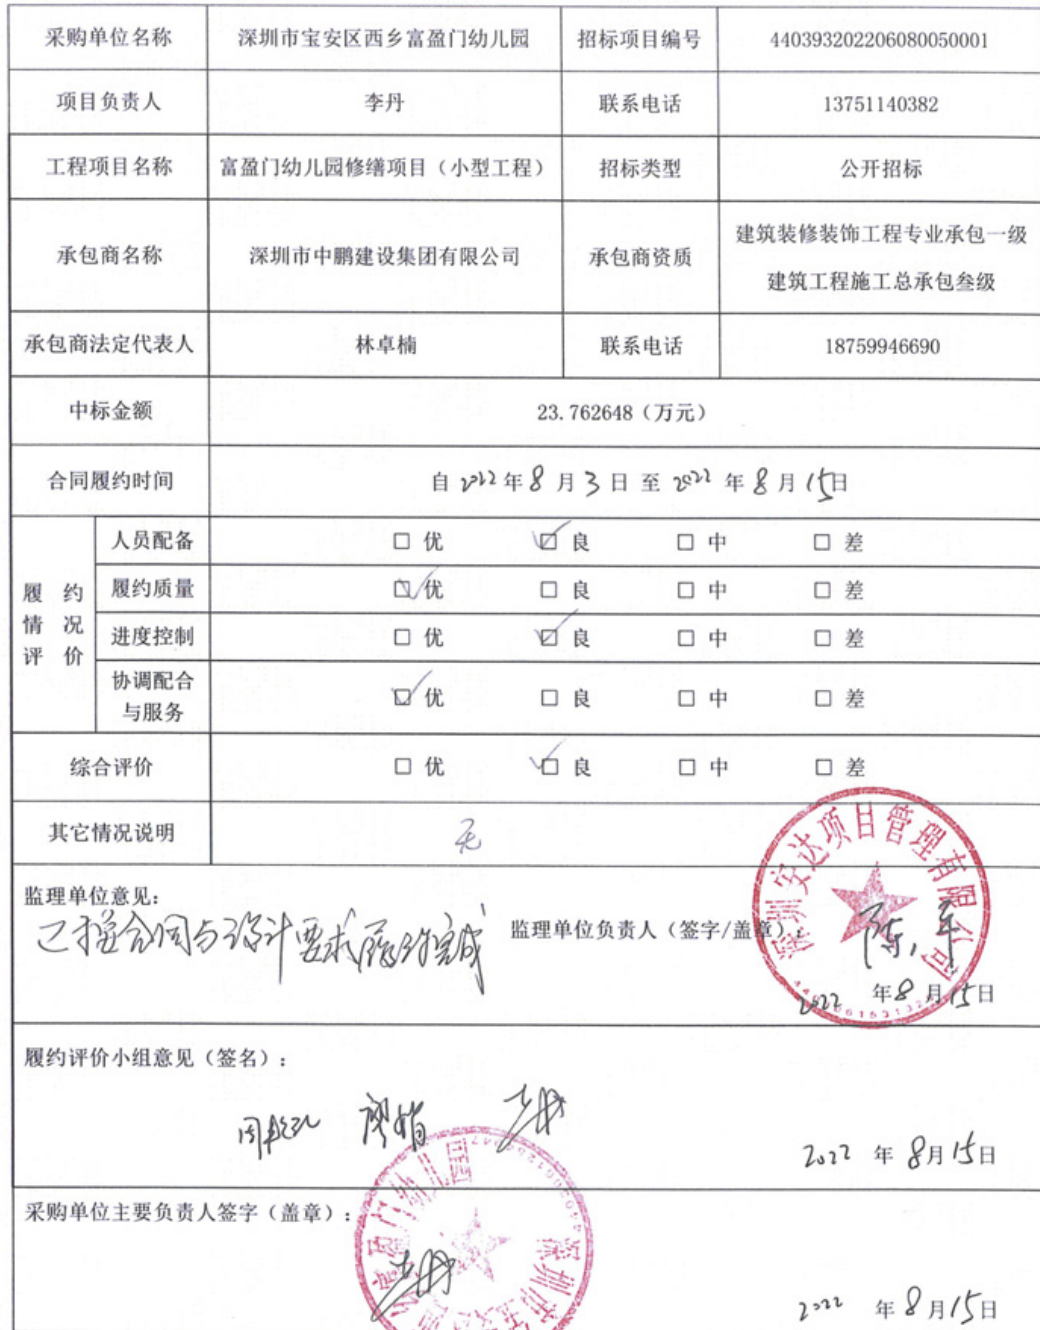 采购单位名称 深圳市宝安区西乡富盈门幼儿园 招标项目编号 44039320220608005001
项目负责人 李丹 联系电话 13751140382
工程项目名称 富盈门幼儿园修缮项目（小型工程） 招标类型 公开招标
承包商名称 深圳市中鹏建设集团有限公司 承包商资质 建筑装修装饰工程专业承包一级
建筑工程施工总承包叁级
承包商法定代表人 林卓楠 联系电话 18759946690
中标金额 23.762648（万元）
合同履约时间 自 2022 年 8 月 3 日 至 2022 年 8 月 15 日
履约情况评价
人员配备 □ 优 ☑ 良 □ 中 □ 差
履约质量 ☑ 优 □ 良 □ 中 □ 差
进度控制 □ 优 ☑ 良 □ 中 □ 差
协调配合
与服务 ☑ 优 □ 良 □ 中 □ 差
综合评价 □ 优 ☑ 良 □ 中 □ 差
其它情况说明 无
监理单位意见：
已按合同与设计要求履约完成 监理单位负责人（签字/盖章）：
深圳安达项目管理有限公司
2022 年 8 月 15 日
履约评价小组意见（签名）：
2022 年 8 月 15 日
采购单位主要负责人签字（盖章）：
2022 年 8 月 15 日